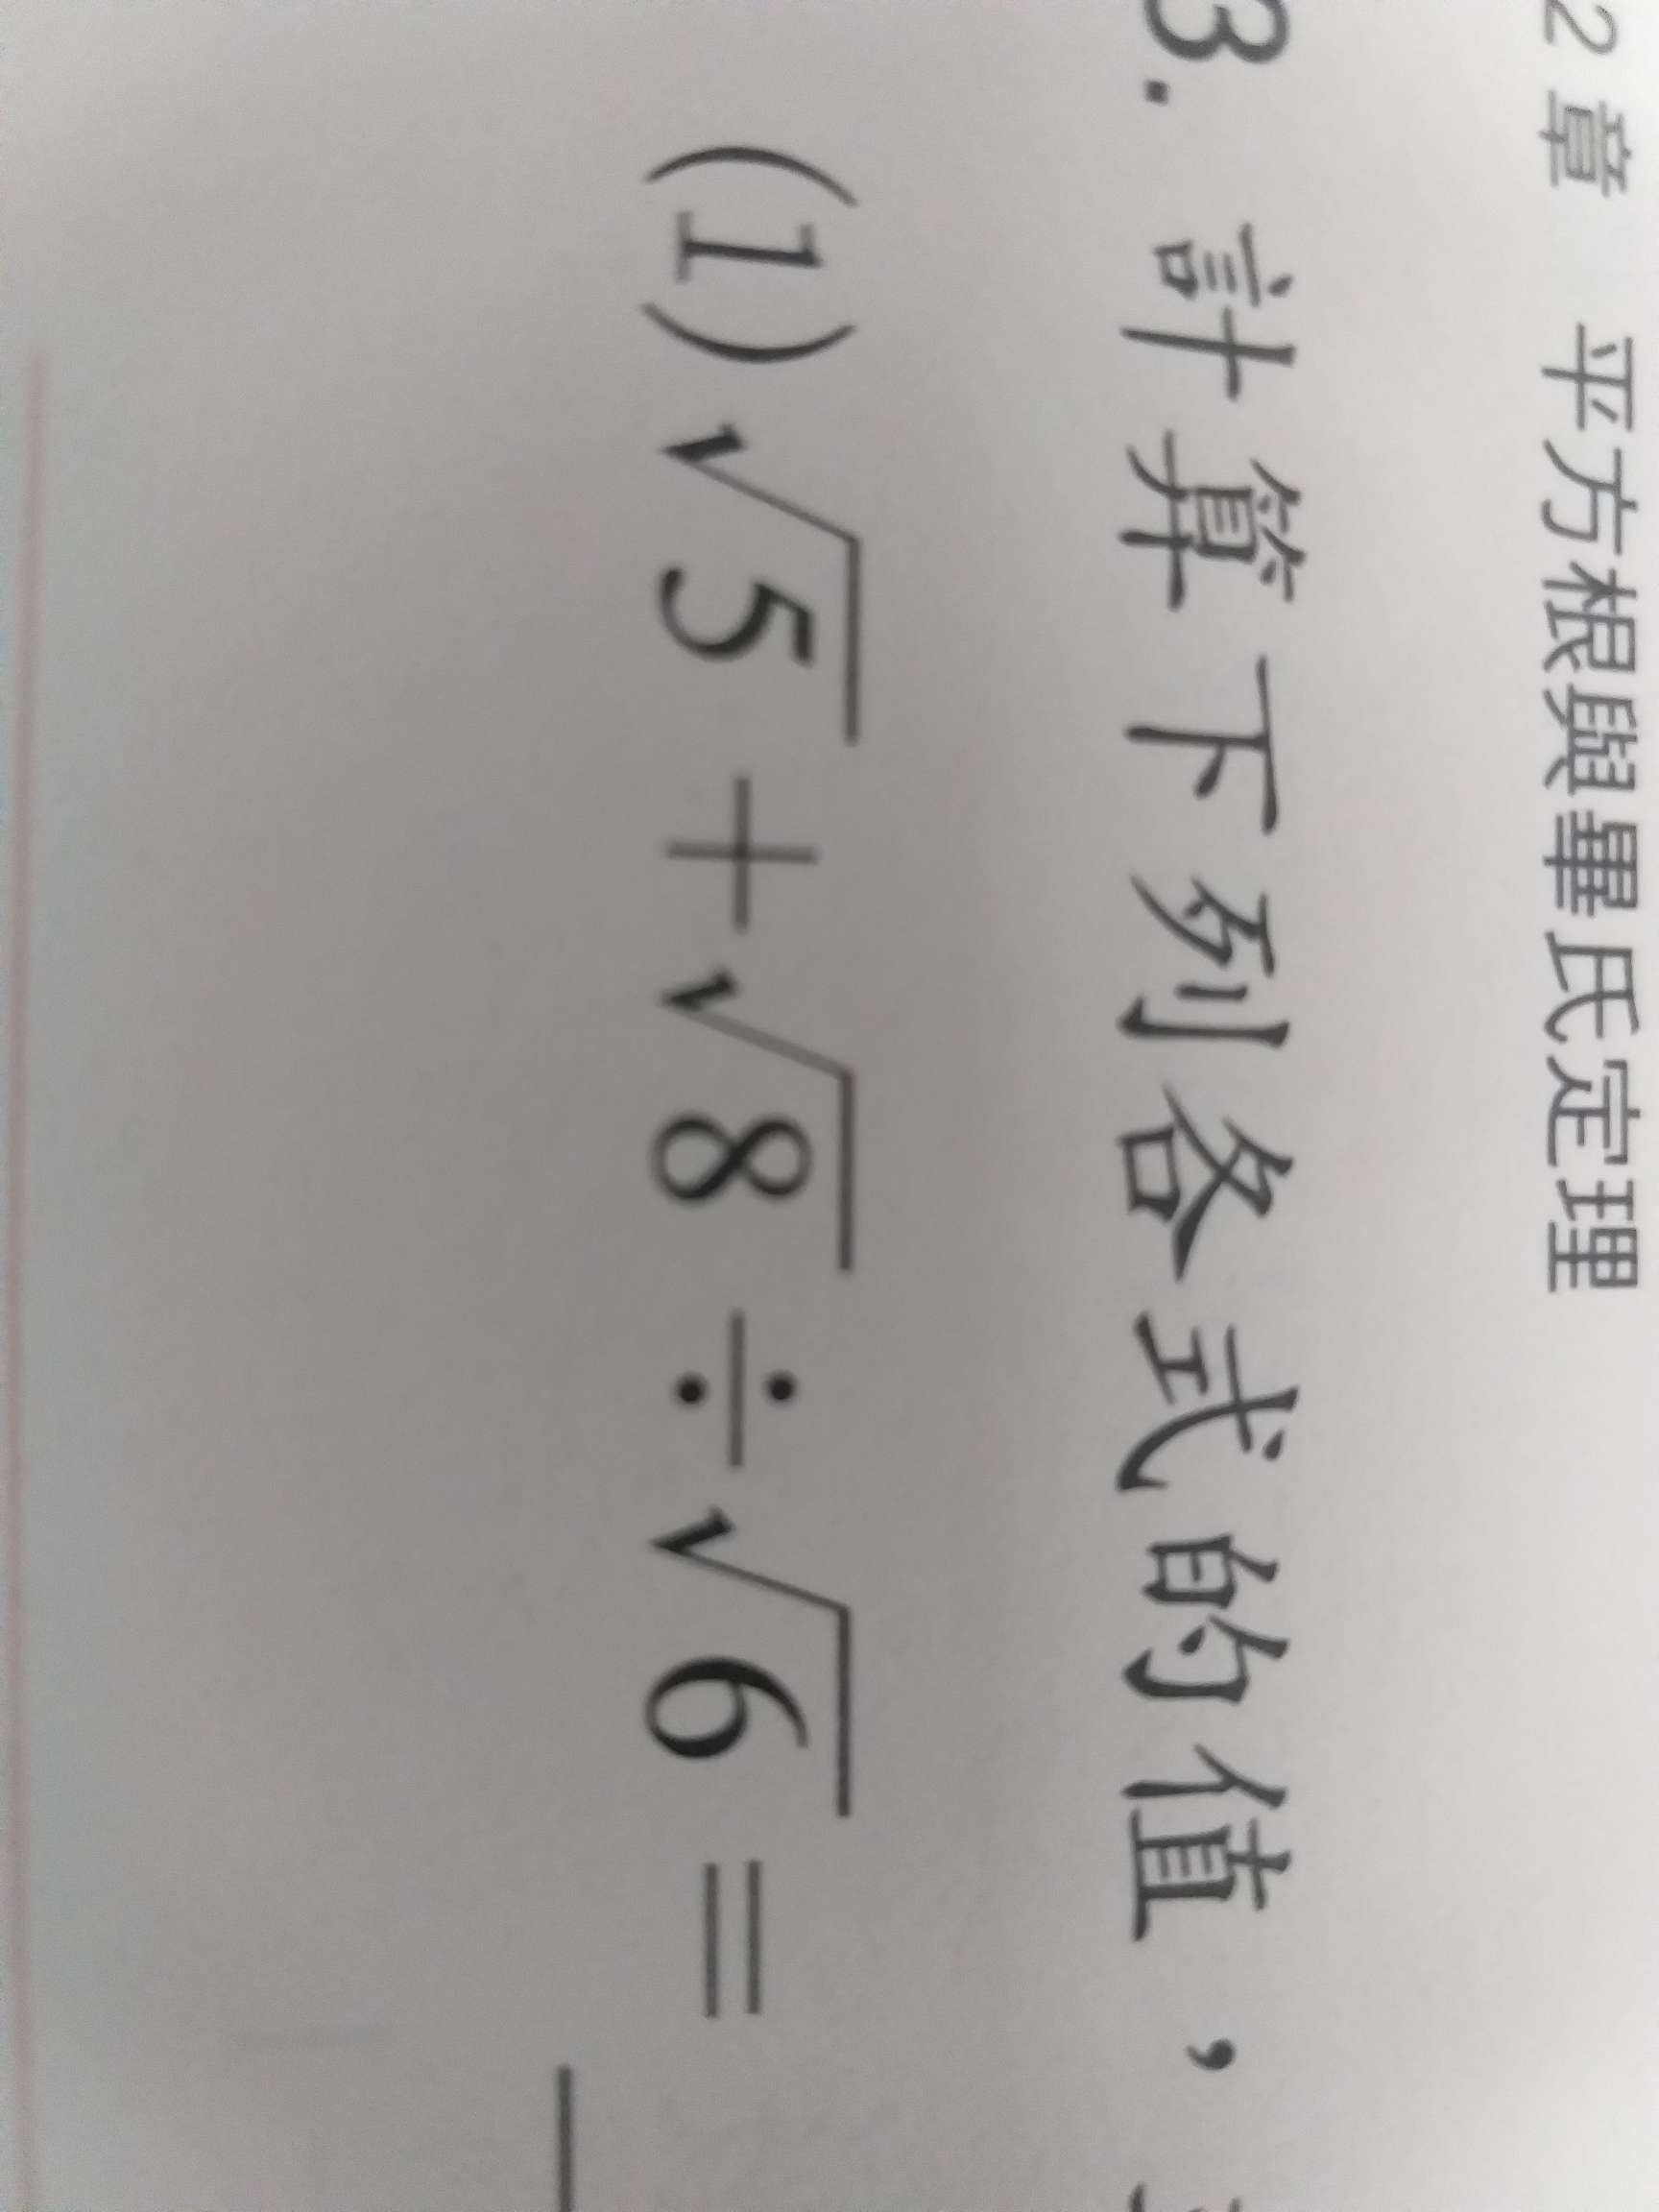 2 章 平方根與畢氏定理
3. 計算下列各式的值，
(1)√5+√8÷√6=